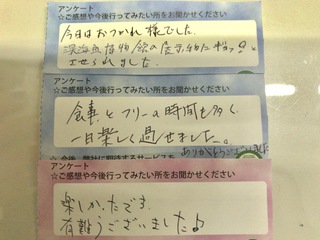 アンケート
☆ご感想や今後行ってみたい所をお聞かせください
今日はおつかれ様でした。
深海魚博物館の展示物にギョッと
させられました。
アンケート
☆ご感想や今後行ってみたい所をお聞かせください
食事とフリーの時間も多く、
一日楽しく過せました。
ありがとうございました
☆今後、弊社に期待するサービスを
アンケート
☆ご感想や今後行ってみたい所をお聞かせください
楽しかったです。
有難うございました♪